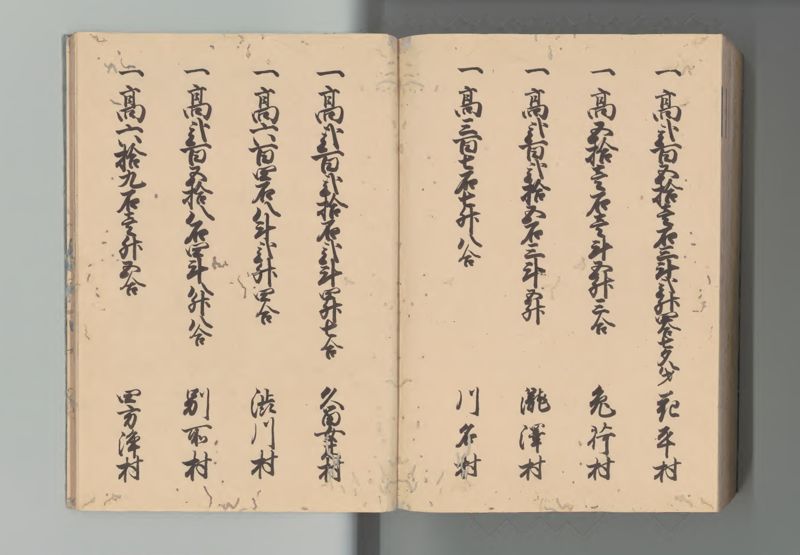 一高弐百五拾壱石三斗弐升四合七夕 花平村
一高五拾壱石壱斗五升三合 兎荷村
一高弐百弐拾五石三斗五升 瀧澤村
一高三百七石七升八合 川名村
一高弐百弐拾石弐斗四升七合 久留女木村
一高六百四石八斗弐升四合 渋川村
一高弐百五拾八石四斗八升八合 別所村
一高六拾九石壱升五合 四方浄村